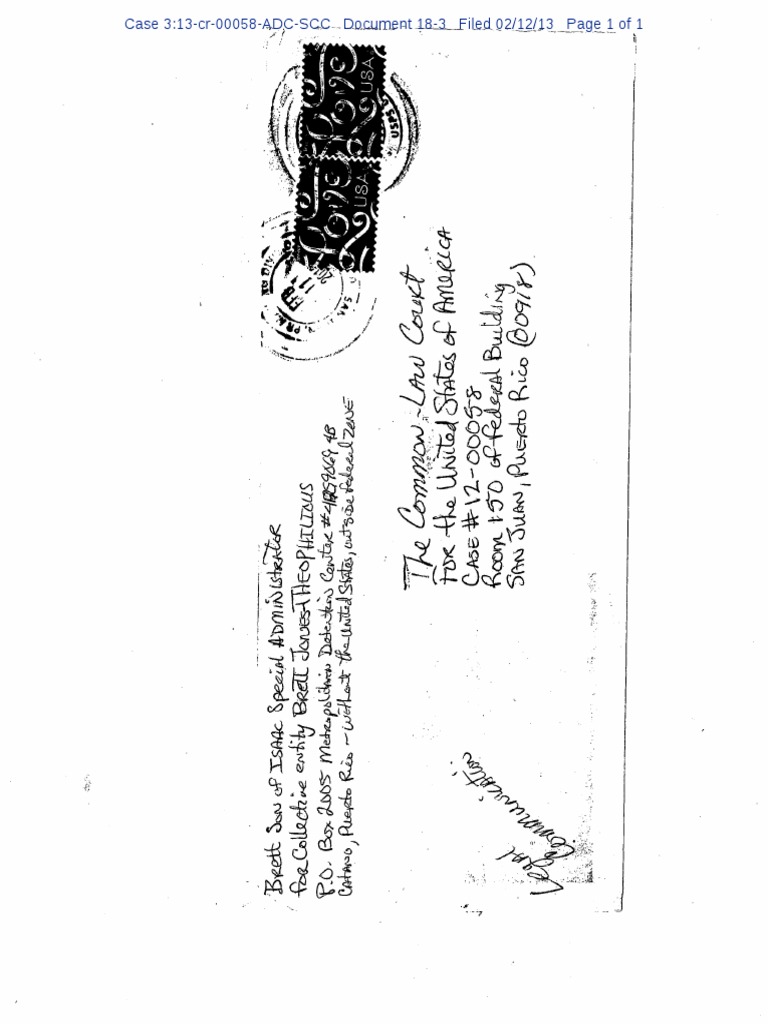 Case 3:13-cr-00058-ADC-SCC Document 18-3 Filed 02/12/13 Page 1 of 1
Brett Son of ISAAC Special ADMINISTRATOR
for Collective entity Brett JONES-THEOPHILIOUS
P.O. Box 2005 Metropolitan Detention Center 4B
CATANO, Puerto Rico - without the United States, outside federal ZONE
Love USA
Love USA
USPS
FEB
11
The COMMON-LAW Court
for the United States of AMERICA
CASE # 12-00058
Room 150 of Federal Building
SAN JUAN, PUERTO RICO (00918)
Legal
Communication